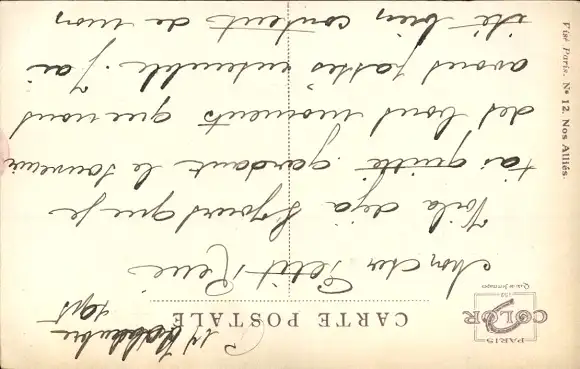 CARTE POSTALE
PARIS
COLOR
152
Quai de Jemmapes
Visé Paris. Nº 12. Nos Alliés.
14 Septembre
1915
Mon cher Petit René
Voila déja 8 jours que je
t'ai quitté gardant le souvenir
des bons moments que nous
avons passés ensemble. J'ai
été bien content de mon